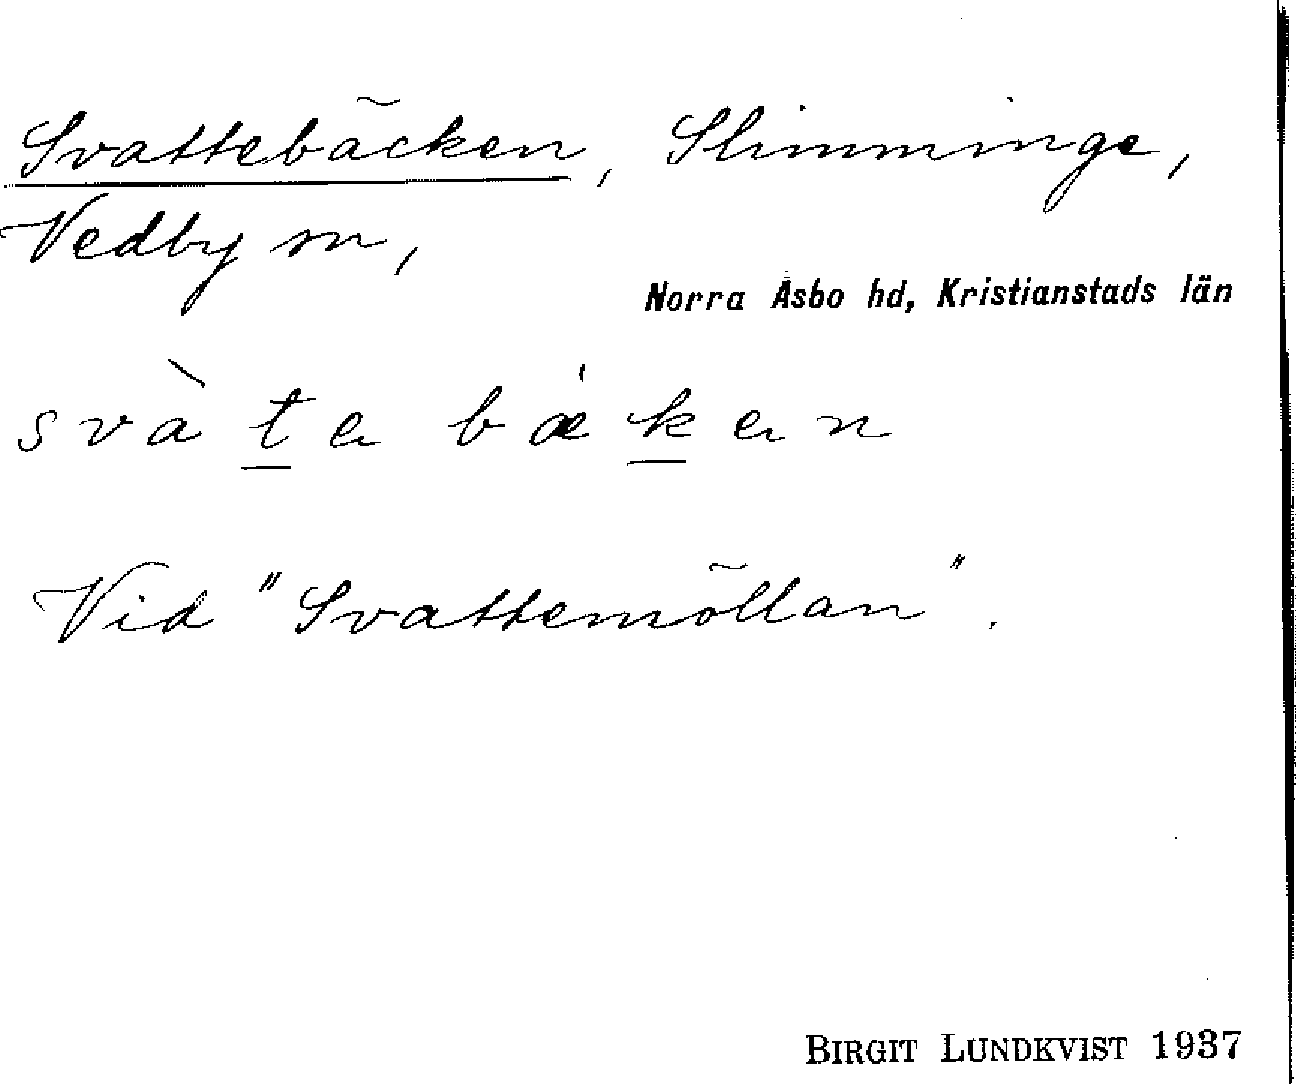 Svattebäcken, Slimminge,
Vedby sn,
Norra Åsbo hd, Kristianstads län
svàte bǽken
Vid "Svattemöllan".
BIRGIT LUNDKVIST 1937